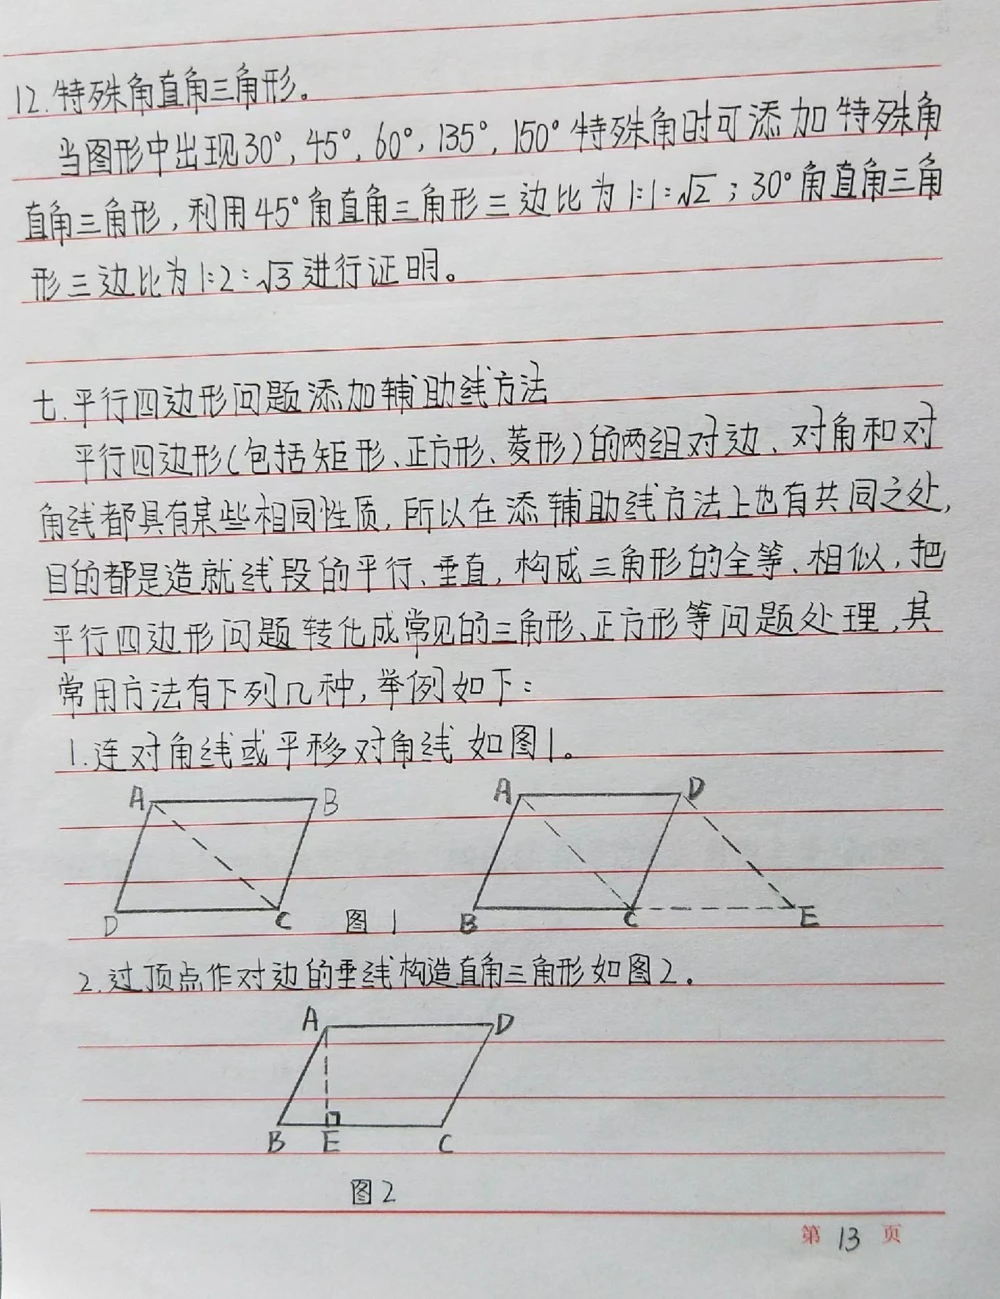 12.特殊角直角三角形。
当图形中出现30°,45°,60°,135°,150°特殊角时可添加特殊角
直角三角形,利用45°角直角三角形三边比为1:1:√2;30°角直角三角
形三边比为1:2:√3进行证明。
七.平行四边形问题添加辅助线方法
平行四边形(包括矩形、正方形、菱形)的两组对边、对角和对
角线都具有某些相同性质,所以在添辅助线方法上也有共同之处,
目的都是造就线段的平行、垂直,构成三角形的全等、相似,把
平行四边形问题转化成常见的三角形、正方形等问题处理,其
常用方法有下列几种,举例如下:
1.连对角线或平移对角线如图1。
A B A D
D C 图1 B C E
2.过顶点作对边的垂线构造直角三角形如图2。
A D
B E C
图2
第 13 页